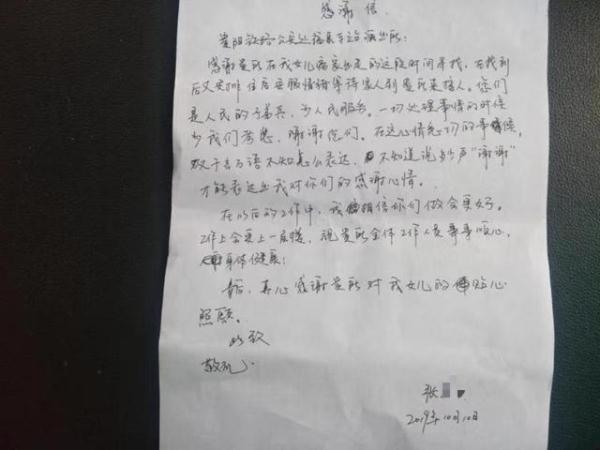 感谢信
贵阳铁路公安处福泉车站派出所：
感谢贵所在我女儿离家出走的这段时间寻找，在找到
后又安排住店安服情绪等待家人到贵所来接人。您们
是人民的子弟兵，为人民服务。一切处理事情的时候
为我们考虑，谢谢您们。在这心情急切的事情候，
双千言万语不知怎么表达，不知道说多少声"谢谢"
才能表达出我对你们的感谢心情。
在以后的工作中，我相信你们做会更好。
工作上会更上一层楼，祝贵所全体工作人员事事顺心，
身体健康！
最后，真心感谢贵所对我女儿的贴心
照顾。
此致
敬礼
张
2019年10月10日